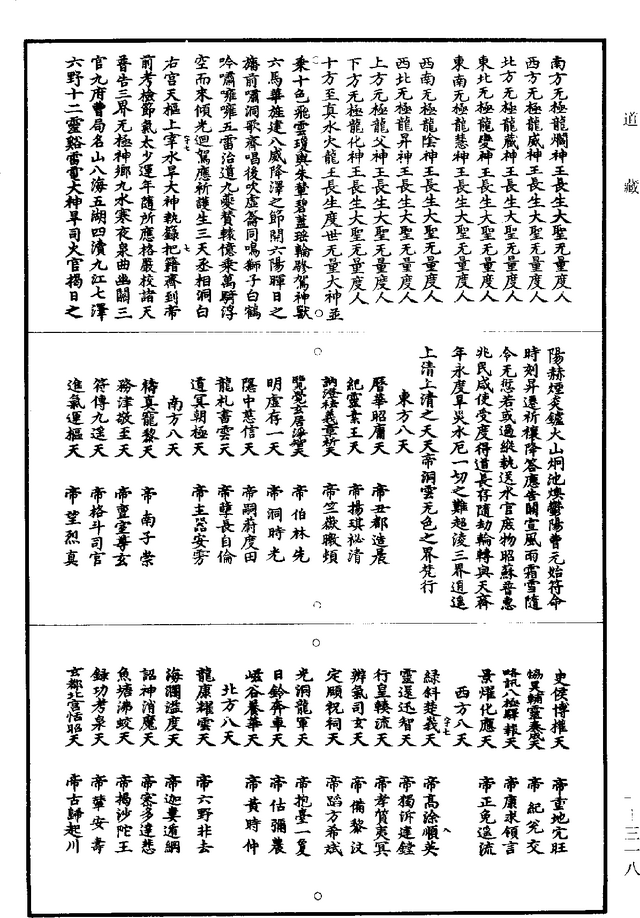 道藏
南方无極龍瀾神王長生大聖无量度人
西方无極龍威神王長生大聖无量度人
北方无極龍藏神王長生大聖无量度人
東北无極龍變神王長生大聖无量度人
東南无極龍慧神王長生大聖无量度人
西南无極龍陰神王長生大聖无量度人
西北无極龍昇神王長生大聖无量度人
上方无極龍父神王長生大聖无量度人
下方无極龍化神王長生大聖无量度人
十方至真水火龍王長生度世无量大神並
乘十色飛雲瓊輿朱輦碧蓋瑶輪驂駕神獸
六馬華旌建八威降澤之節開六陽暉日之
旛前嘯洞歌齊唱後吹虚籥同鳴獅子白鶴
吟嘯嗈嗈五雷治道九夔贊轅億乘萬騎浮
空而來傾光迴駕應祈護生三天丞相洞白
右宮天樞上宰水旱大神執籙把籍齊到帝
前考檢節氣太少運年隨所應格嚴校諸天
普告三界无極神鄉九水寒夜泉曲幽關三
官九府曹局名山八海五湖四瀆九江七澤
六野十二靈谿雷電大神旱司火官揭日之
陽赫煙炎鑪火山炯池煥鬱陽曹元始符命
時刻昇遷祈禳降答應告關宣風雨霜雪隨
今无愆若或過縱執送水官庶物昭蘇普惠
兆民咸使受度得道長存隨劫輪轉與天齊
年永度旱災水厄一切之難超淩三界逍遥
上清上清之天天帝洞雲无色之界梵行
東方八天
曆華昭膚天 帝丑都造晨
紀靈素王天 帝揚琪祕清
訥澄祛義章祈天 帝竺嶽職煩
覽覺玄居淨智天 帝伯林先
明虚存一天 帝洞時光
隱中慈信天 帝嗣蔚度田
龍札書雲天 帝孽長自倫
道冥朝極天 帝主嚣安雱
南方八天
禱真寵黎天 帝南子祟
務津敬至天 帝亶室尊玄
符傳九遥天 帝格斗司官
進氣運樞天 帝望烈真
史侯博權天 帝重地完旺
協異輔靈奏成天 帝紀兊交
略訊八極驛報天 帝康求領言
景燿化應天 帝正兔遥流
西方八天
緑斜楚義天 帝高涂順英
靈遐迅智天 帝獨訴建鏜
行皇轃流天 帝孝賀夷冥
辨氣司玄天 帝備黎汶
定順祝祠天 帝蹈方希斌
光洞龍軍天 帝抱臺一夐
日鈴奔車天 帝估彌農
嵫谷養華天 帝黄時仲
北方八天
龍康耀雲天 帝六野非去
海瀾溢度天 帝迦婁道綱
詔神消魔天 帝塞多達悲
魚塘沸蛟天 帝揭沙陀王
録功考臮天 帝輦安壽
玄都北宫恬昭天 帝古歸起川
一—三一八